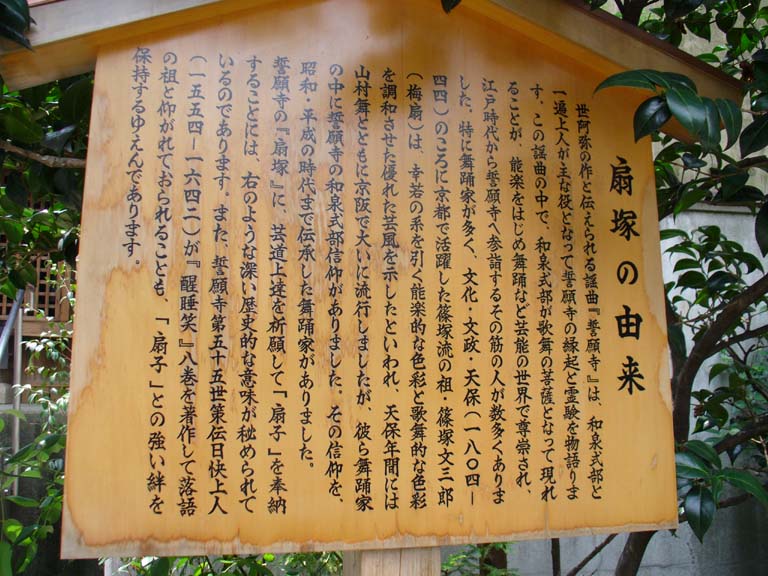 扇塚の由来
世阿弥の作と伝えられる謡曲『誓願寺』は、和泉式部と
一遍上人が主な役となって誓願寺の縁起と霊験を物語りま
す。この謡曲の中で、和泉式部が歌舞の菩薩となって現れ
ることが、能楽をはじめ舞踊など芸能の世界で尊崇され、
江戸時代から誓願寺へ参詣するその筋の人が数多くありま
した。特に舞踊家が多く、文化・文政・天保(一八〇四ー
四四)のころに京都で活躍した篠塚流の祖・篠塚文三郎
(梅扇)は、幸若の系を引く能楽的な色彩と歌舞的な色彩
を調和させた優れた芸風を示したといわれ、天保年間には
山村舞とともに京阪で大いに流行しましたが、彼ら舞踊家
の中に誓願寺の和泉式部信仰がありました。その信仰を、
昭和・平成の時代まで伝承した舞踊家がありました。
誓願寺の『扇塚』に、芸道上達を祈願して「扇子」を奉納
することには、右のような深い歴史的な意味が秘められて
いるのであります。また、誓願寺第五十五世策伝日快上人
(一五五四ー一六四二)が『醒睡笑』八巻を著作して落語
の祖と仰がれておられることも、「扇子」との強い絆を
保持するゆえんであります。